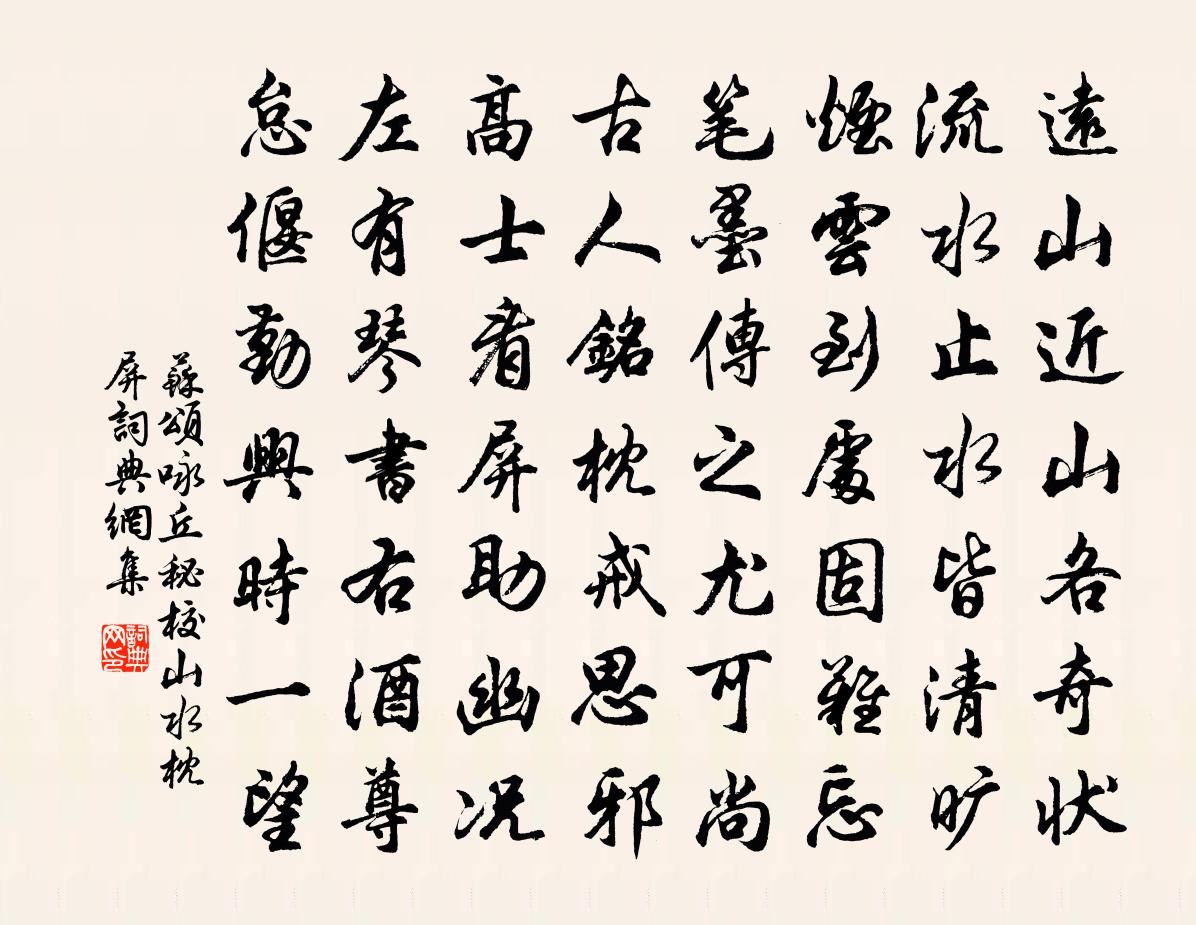 遠山近山各奇状
流水止水皆清旷
煙雲到處固難忘
笔墨傳之尤可尚
古人銘枕戒思邪
高士看屏助幽况
左有琴書右酒尊
怠偃勤興時一望
蘇頌咏丘秘校山水枕
屏詞典網集
詞典
网印